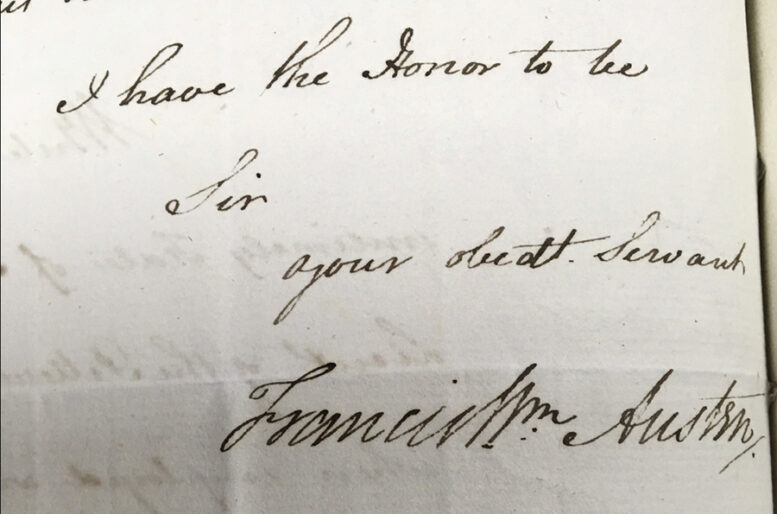 I have the Honor to be
Sir
your obedt. Servant
Francis Wm. Austen